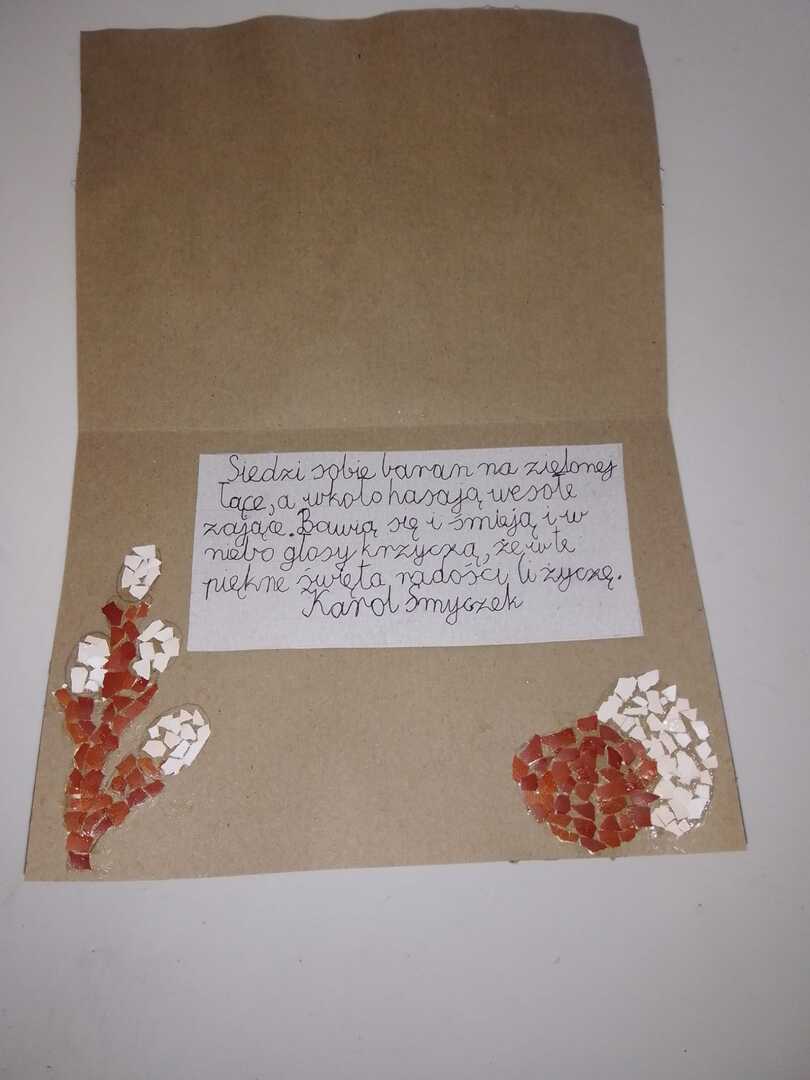 Siedzi sobie baran na zielonej
łące, a wkoło hasają wesołe
zające. Bawią się i śmieją i w
niebo głosy krzyczą, że w te
piękne święta radości Ci życzę.
Karol Smyczek